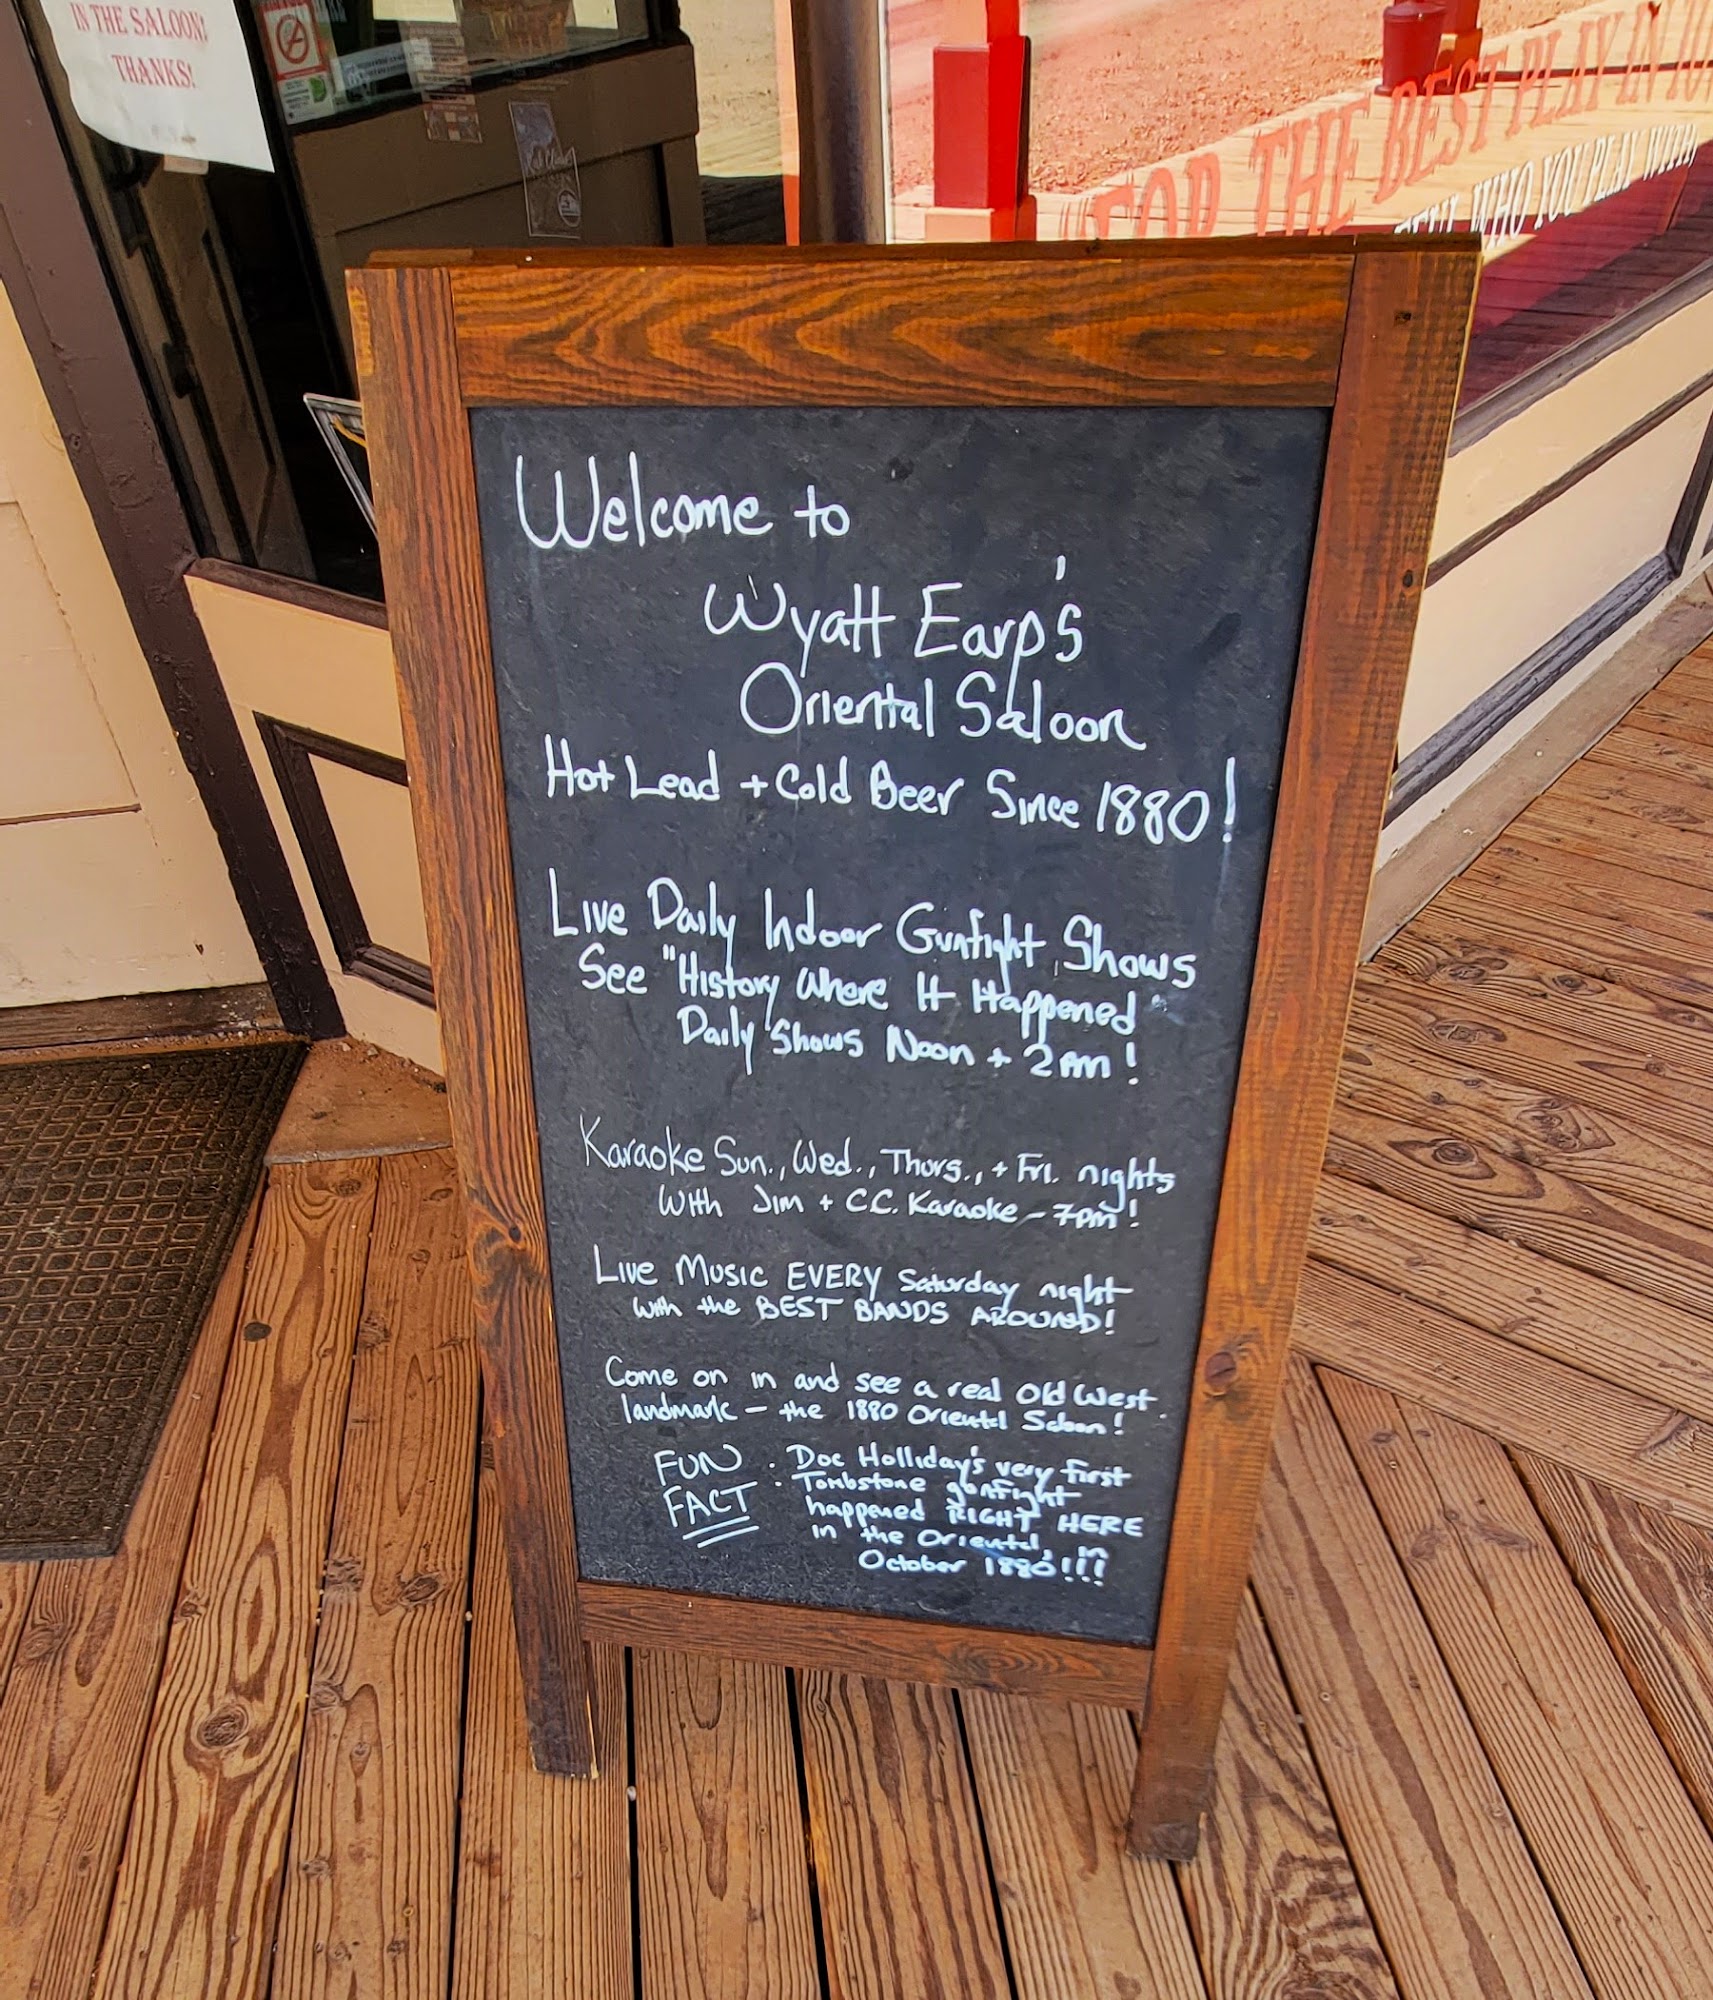 IN THE SALOON!
THANKS!
"FOR THE BEST PLAY IN
WHO YOU PLAY WITH,
Welcome to
Wyatt Earp's
Oriental Saloon
Hot Lead + Cold Beer Since 1880!
Live Daily Indoor Gunfight Shows
See "History Where It Happened"
Daily Shows Noon + 2pm!
Karaoke Sun., Wed., Thurs., + Fri. nights
With Jim + C.C. Karaoke - 7pm!
Live Music EVERY Saturday night
with the BEST BANDS AROUND!
Come on in and see a real Old West
landmark - the 1880 Oriental Saloon!
FUN FACT : Doc Holliday's very first
Tombstone gunfight
happened RIGHT HERE
in the Oriental, in
October 1880!!!